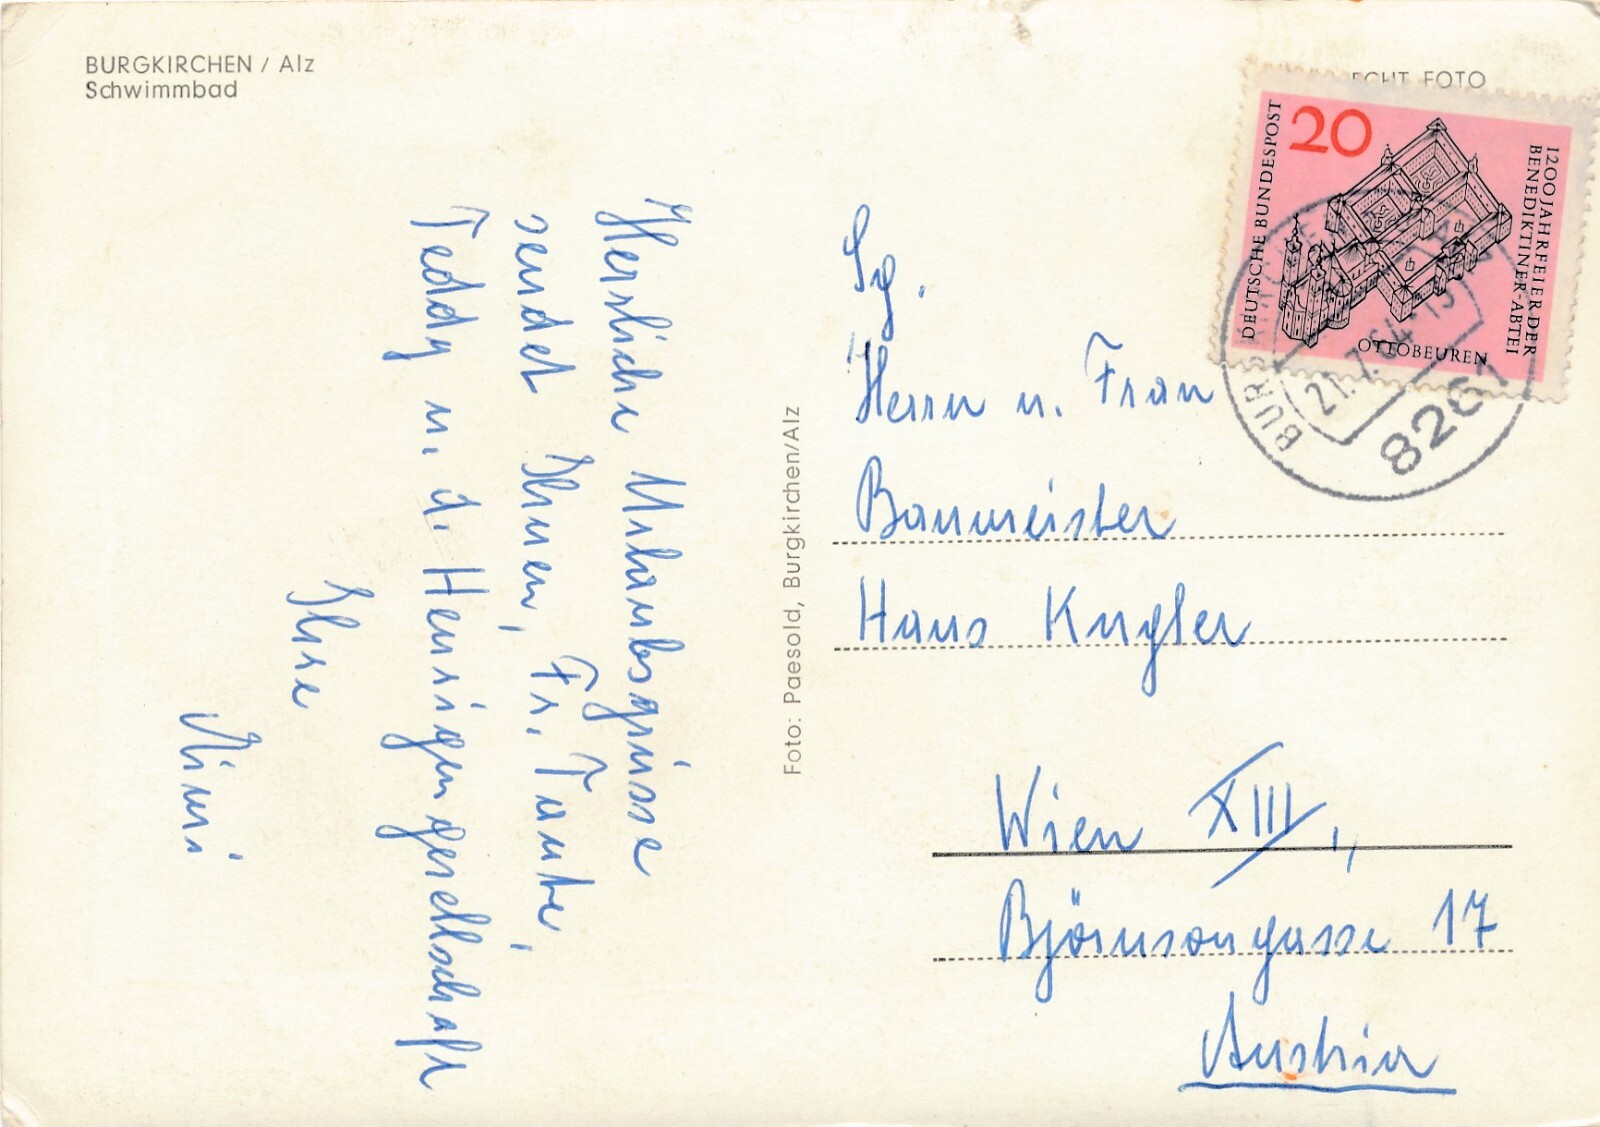 BURGKIRCHEN / Alz
Schwimmbad
ECHT FOTO
DEUTSCHE BUNDESPOST
20
1200 JAHRFEIER DER
BENEDIKTINER-ABTEI
OTTOBEUREN
21.7.64-15
8261
Herzliche Urlaubsgrüsse
sendet Ihnen, Fr. Tante,
Teddy u. d. Heurigengesellschaft
Ihre
Mimi
Foto: Paesold, Burgkirchen/Alz
Sg.
Herrn u. Frau
Baumeister
Hans Kugler
Wien XIII,
Björnsongasse 17
Austria